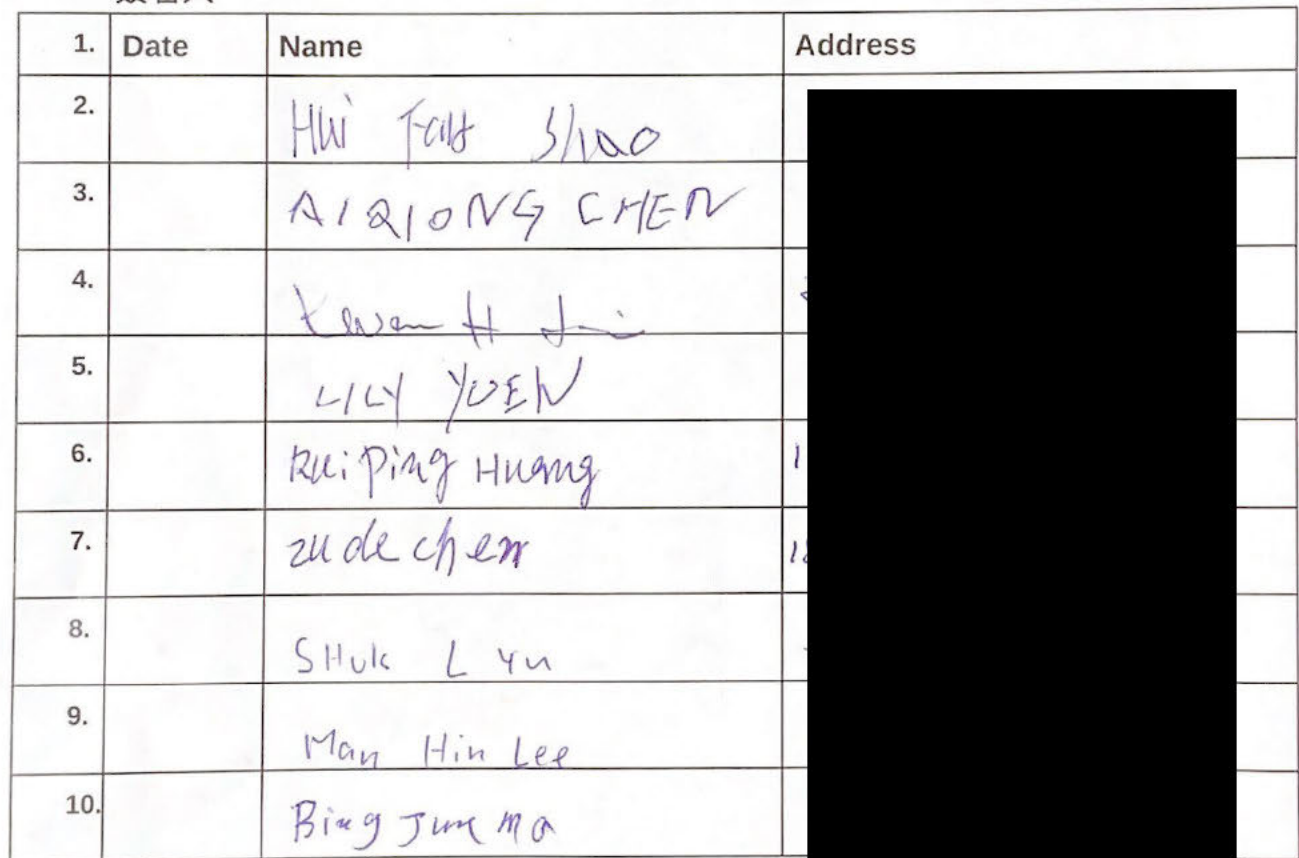 1. Date Name Address
2. Hui Shao
3. AIQIONG CHEN
4. H
5. LILY YUEN
6. Rui Ping Huang
7. zude chen
8. SHuk L Yu
9. Man Hin Lee
10. Bing Jun Ma